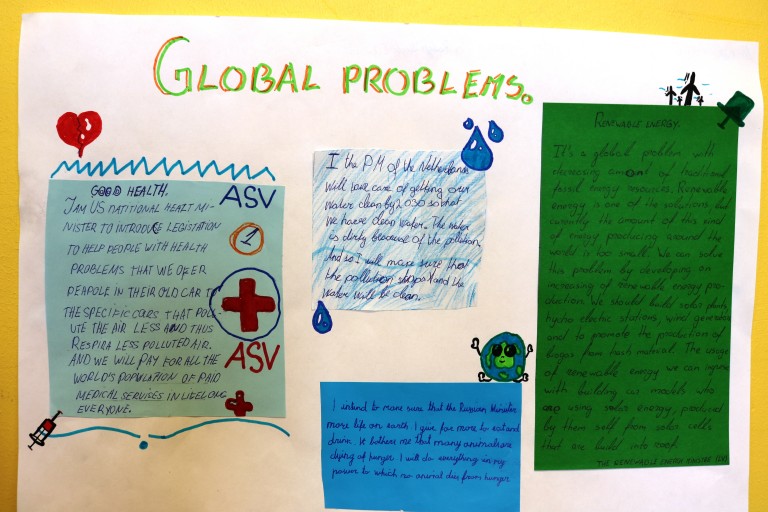 GLOBAL PROBLEMS.
GOOD HEALTH.
I AM US NATITIONAL HEALT MI-
NISTER TO INTRODUCE LEGISLATION
TO HELP PEOPLE WITH HEALTH
PROBLEMS THAT WE OFER
PEAPOLE IN THEIR OLD CAR TO
THE SPECIFIC CARS THAT POLL-
UTE THE AIR LESS AND THUS
RESPIRA LESS POLLUTED AIR.
AND WE WILL PAY FOR ALL THE
WORLD'S POPULATION OF PAID
MEDICAL SERVISES IN LIFELONG
EVERYONE.
ASV
1
ASV
I the PM of the Netherlands
will take care of getting over
water clean by 2030 so that
we have clean water. The water
is dirty because of the pollution,
And so I will make sure that
the pollution stops and the
water will be clean.
I intend to more sure that the Russian Minister
more life on earth I give for more to eat and
drink. It bothers me that many animals are
dying of hunger I will do everything in my
power to which no animal dies from hunger
RENEWABLE ENERGY.
It's a global problem with
decreasing amount of traditional
fossil energy resources. Renewable
energy is one of the solutions but
currently the amount of this kind
of energy producing around the
world is too small. We can solve
this problem by developing an
increasing of renewable energy pro-
duction. We should build solar plants,
hydro electric stations, wind generators
and to promote the production of
biogas from trash material. The usage
of renewable energy we can improve
with building car models who
are using solar energy, produced
by them self from solar cells
that are build into roof.
THE RENEWABLE ENERGY MINISTER (LV)